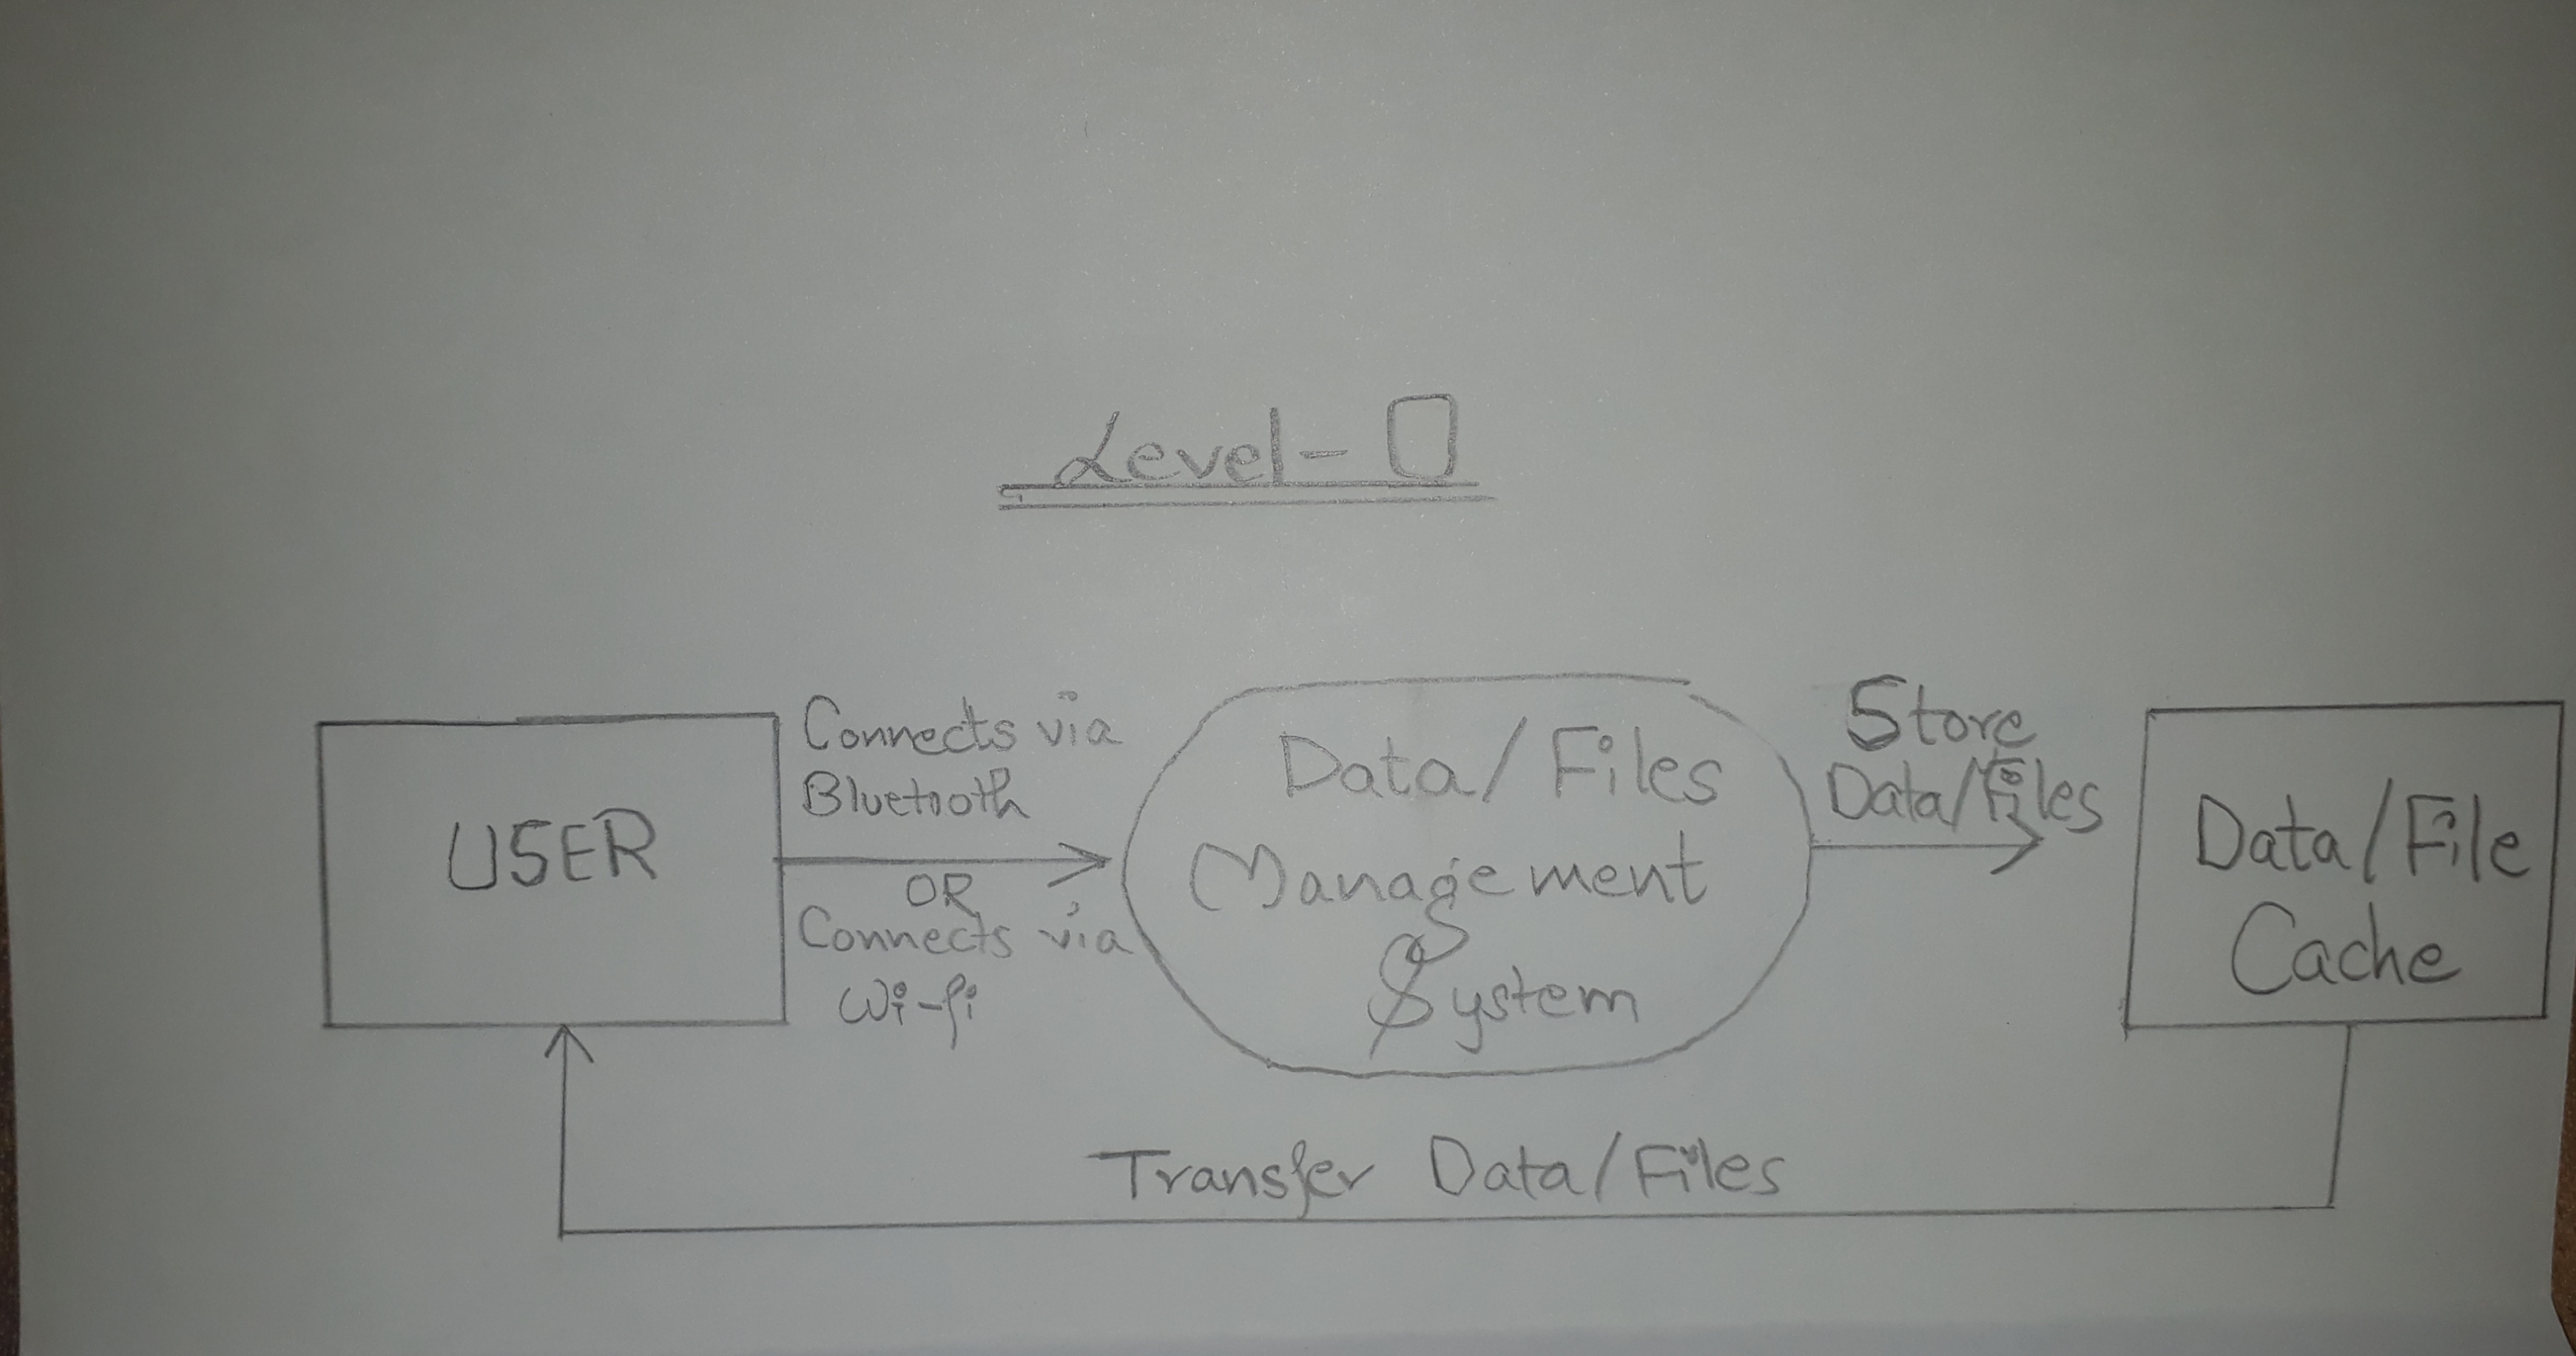 Level-0
USER
Connects via
Bluetooth
OR
Connects via
Wi-fi
Data/Files
Management
System
Store
Data/Files
Data/File
Cache
Transfer Data/Files